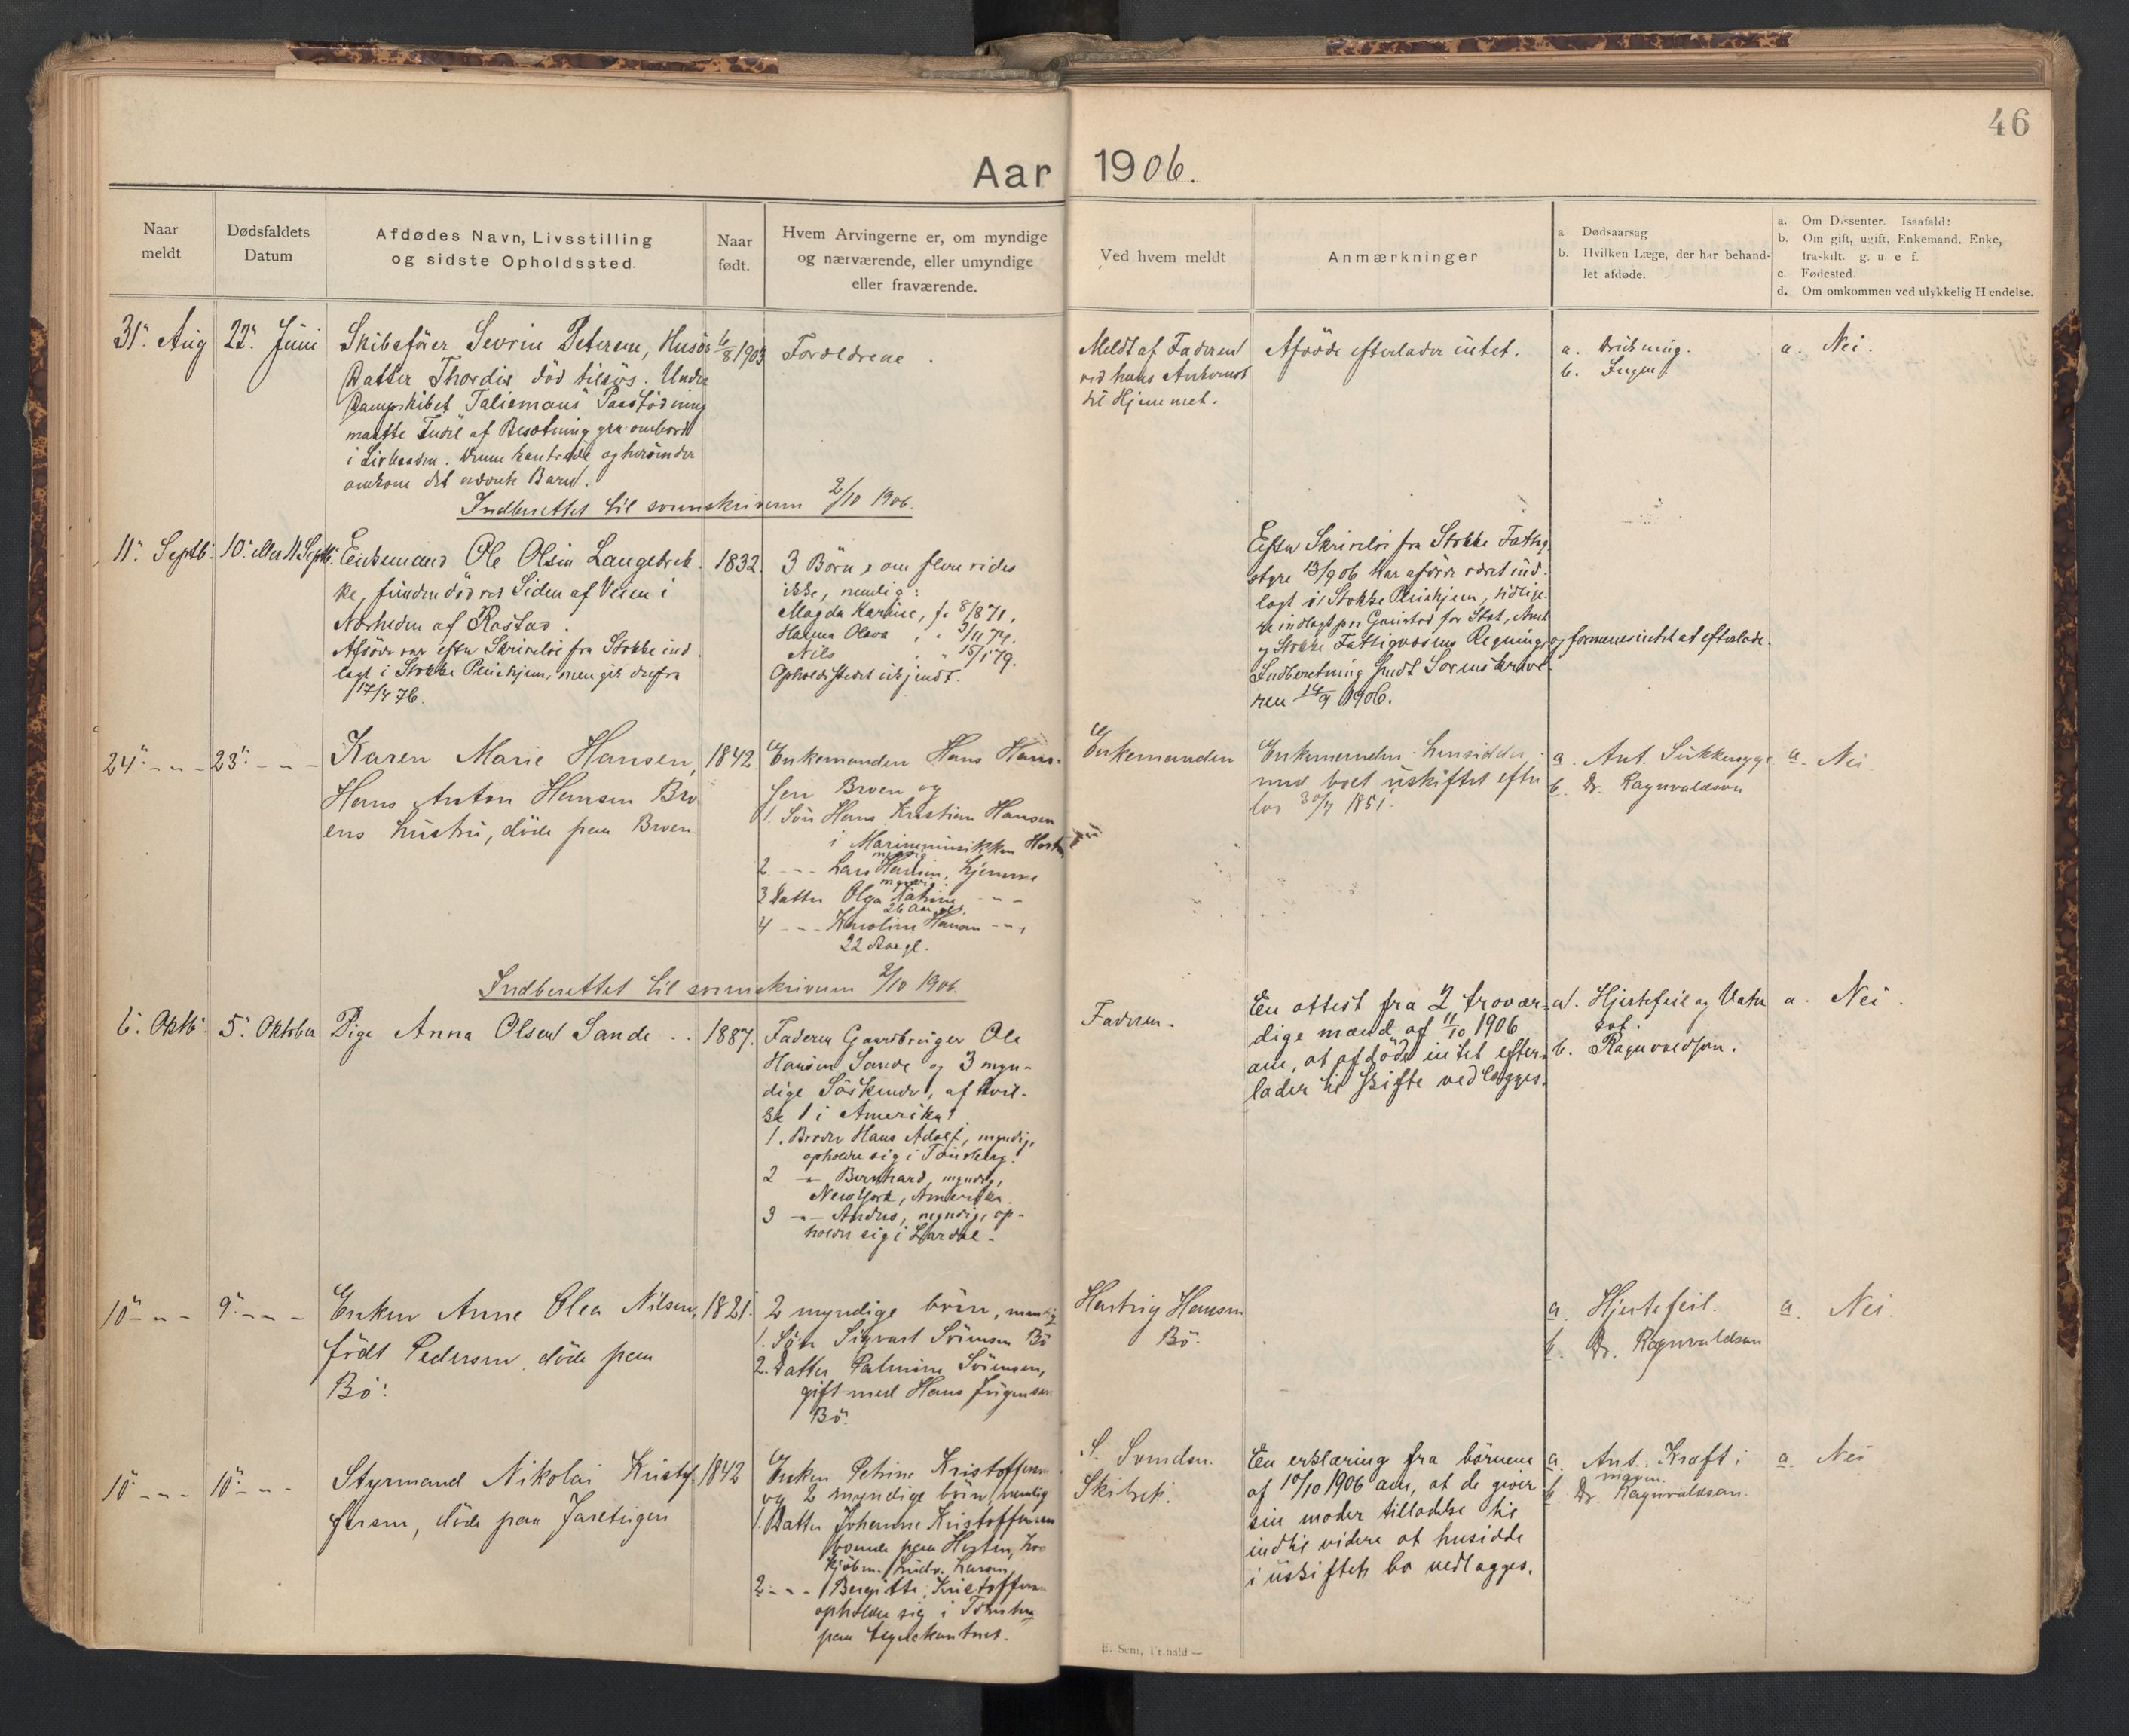 46
Aar 1906.
Naar meldt
Dødsfaldets Datum
Afdødes Navn, Livsstilling og sidste Opholdssted.
Naar født.
Hvem Arvingerne er, om myndige og nærværende, eller umyndige eller fraværende.
Ved hvem meldt
Anmærkninger
a Dødsaarsag
b. Hvilken Læge, der har behand-
let afdøde.
a. Om Dissenter. Isaafald:
b. Om gift, ugift, Enkemand, Enke,
fraskilt. g. u. e. f.
c. Fødested.
d. Om omkommen ved ulykkelig Hændelse.
31. Aug
22. Juni
Skibsfører Sevrin Petersen, Husøs
Datter Thordis død tilsøs. Under
Dampskibet "Talismans" Paastødning
maatte Endel af Besætning gaa ombord
i Livbaaden. Denne kantrede og herunder
omkom det nævnte Barn.
6/8 1903
Forældrene.
Meldt af Faderen
ved hans Ankomst
til Hjemmet.
Afdøde efterlader intet.
a. Drukning.
b. Ingen.
a. Nei.
Indberettet til sorenskriveren 2/10 1906.
11. Septb.
10. eller 11 Septb.
Enkemand Ole Olsen Langebrek
ke, funden død ved Siden af Veien i
Nærheden af Rastad.
Afdøde var efter Skrivelse fra Stokke ind
lagt i Stokke Pleiehjem, men gik derfra
17/4 76.
1832.
3 Børn, om flere vides
ikke, nemlig:
Magda Karine, f. 8/8 71,
Hanna Olava, " 3/11 74.
Nils, " 15/1 79.
Opholdsstedet ukjendt.
Efter Skrivelse fra Stokke Fattig
styre 13/9 06 har afdøde været ind-
lagt i Stokke Pleiehjem, tidlige-
re indlagt paa Gaustad for Stat, Amt
og Stokke Fattigvæsens Regning og formenes intet at efterlade.
Indberetning sendt Sorenskrive
ren 14/9 1906.
24. - " -
23. - " -
Karen Marie Hansen,
Hans Anton Hansen Bro
ens hustru, døde paa Broen
1842.
Enkemanden Hans Han-
sen Broen og
1. Søn Hans Kristian Hansen
i Marinemusikken Horten
myndig
2. - " - Lars Hansen, hjemme
myndig
3 Datter Olga - " -
26 Aar gl.
4 - " - Karoline Hansen - " -,
22 Aar gl.
Enkemanden
Enkemanden hensidder
med boet uskiftet efter
lov 30/7 1851.
a. Ant. Sukkersyge
b. Dr. Ragnvaldson
a. Nei
Indberettet til sorenskriveren 2/10 1906.
6. Oktb.
5. Oktober
Pige Anna Olsen Sande
1887.
Faderen Gaardbruger Ole
Hansen Sande og 3 myn-
dige Söskende, af hvil-
ke 1 i Amerika.
1. Broder Hans Adolf, myndig,
opholder sig i Tønsberg.
2 - " - Bernhard, myndig,
New York, Amerika.
3 - " - Andres, myndig, op-
holder sig i Lardal.
Faderen.
En attest fra 2 trovær-
dige mænd af 11/10 1906
om, at afdöde intet efter-
lader til skifte vedlægges.
a. Hjertefeil og Vater
sot.
b. Ragnvaldson.
a. Nei.
10 - " -
9. - " -
Enken Anne Olea Nilsen,
födt Pedersen, döde paa
Bö.
1821.
2 myndige börn, nemlig
1. Sön Sigvart Sörensen Bö
2. Datter Palmine Sörensen,
gift med Hans Jörgensen
Bö.
Hartvig Hansen
Bö.
a. Hjertefeil.
b. Dr. Ragnvaldson
a. Nei.
10 - " -
10 - " -
Styrmand Nikolai Kristof
fersen, döde paa Jareteigen
1842
Enken Petrine Kristoffersen
og 2 myndige börn, nemlig
1. Datter Johanne Kristoffersen
boende paa Horten, hos
Kjöbm. Ludv. Larsen,
2 - " - Bergitte Kristoffersen
opholder sig i Tönsberg
paa
S. Svendsen
En erklæring fra börnene
af 10/10 1906 om, at de giver
sin moder tilladelse til
indtil videre at hensidde
i uskiftet bo vedlægges.
a. Ant. Kræft i
maven.
b. Dr. Ragnvaldson.
a. Nei
E. Sem, Fr.hald —